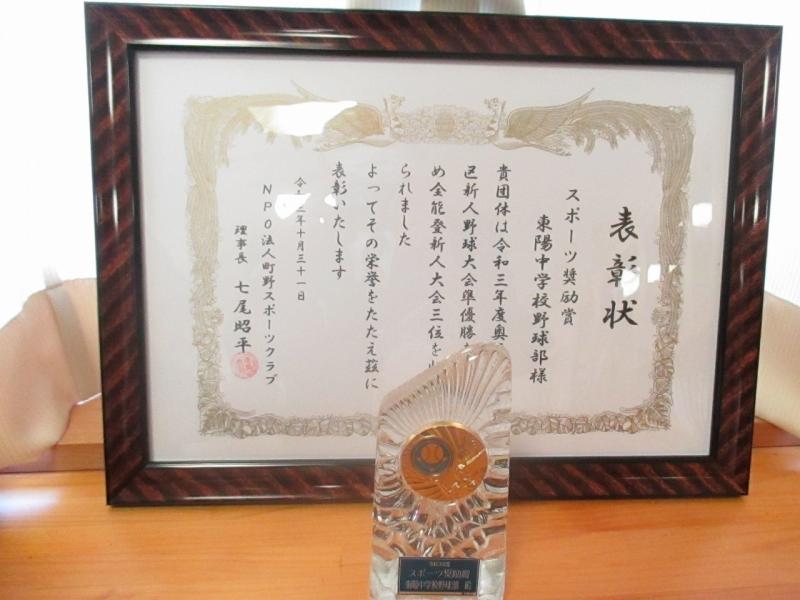 表彰状
スポーツ奨励賞
東陽中学校野球部様
貴団体は令和三年度奥
区新人野球大会準優勝
め全能登新人大会三位を
られました
よってその栄誉をたたえ茲に
表彰いたします
令和三年十月三十一日
NPO法人町野スポーツクラブ
理事長 七尾昭平
スポーツ奨励賞
東陽中学校野球部 殿